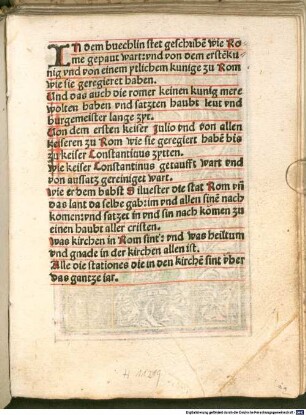 In dem buechlin stet geschribē wie Ro
me gepaut wart: vnd von dem erstē kü
nig vnd von einem ytlichem kunige zu Rom
wie sie geregieret haben.
Vnd das auch die romer keinen kunig mere
wolten haben vnd satzten haubt leut vnd
burgemeister lange zyt.
Von dem ersten keiser Julio vnd von allen
keiseren zu Rom wie sie geregiert habē bis
zu keiser Constantinus zytten.
wie keiser Constantinus getaufft wart vnd
von aussatz gereiniget wart.
wie er dem babst Siluester die stat Rom vñ
das lant da selbe gab: im vnd allen sinē nach
komen: vnd satzet in vnd sin nach komen zu
einen haubt aller cristen.
was kirchen in Rom sint: vnd was heiltum
vnd gnade in der kirchen allen ist.
Alle die stationes die in den kirchē sint vber
das gantze iar.